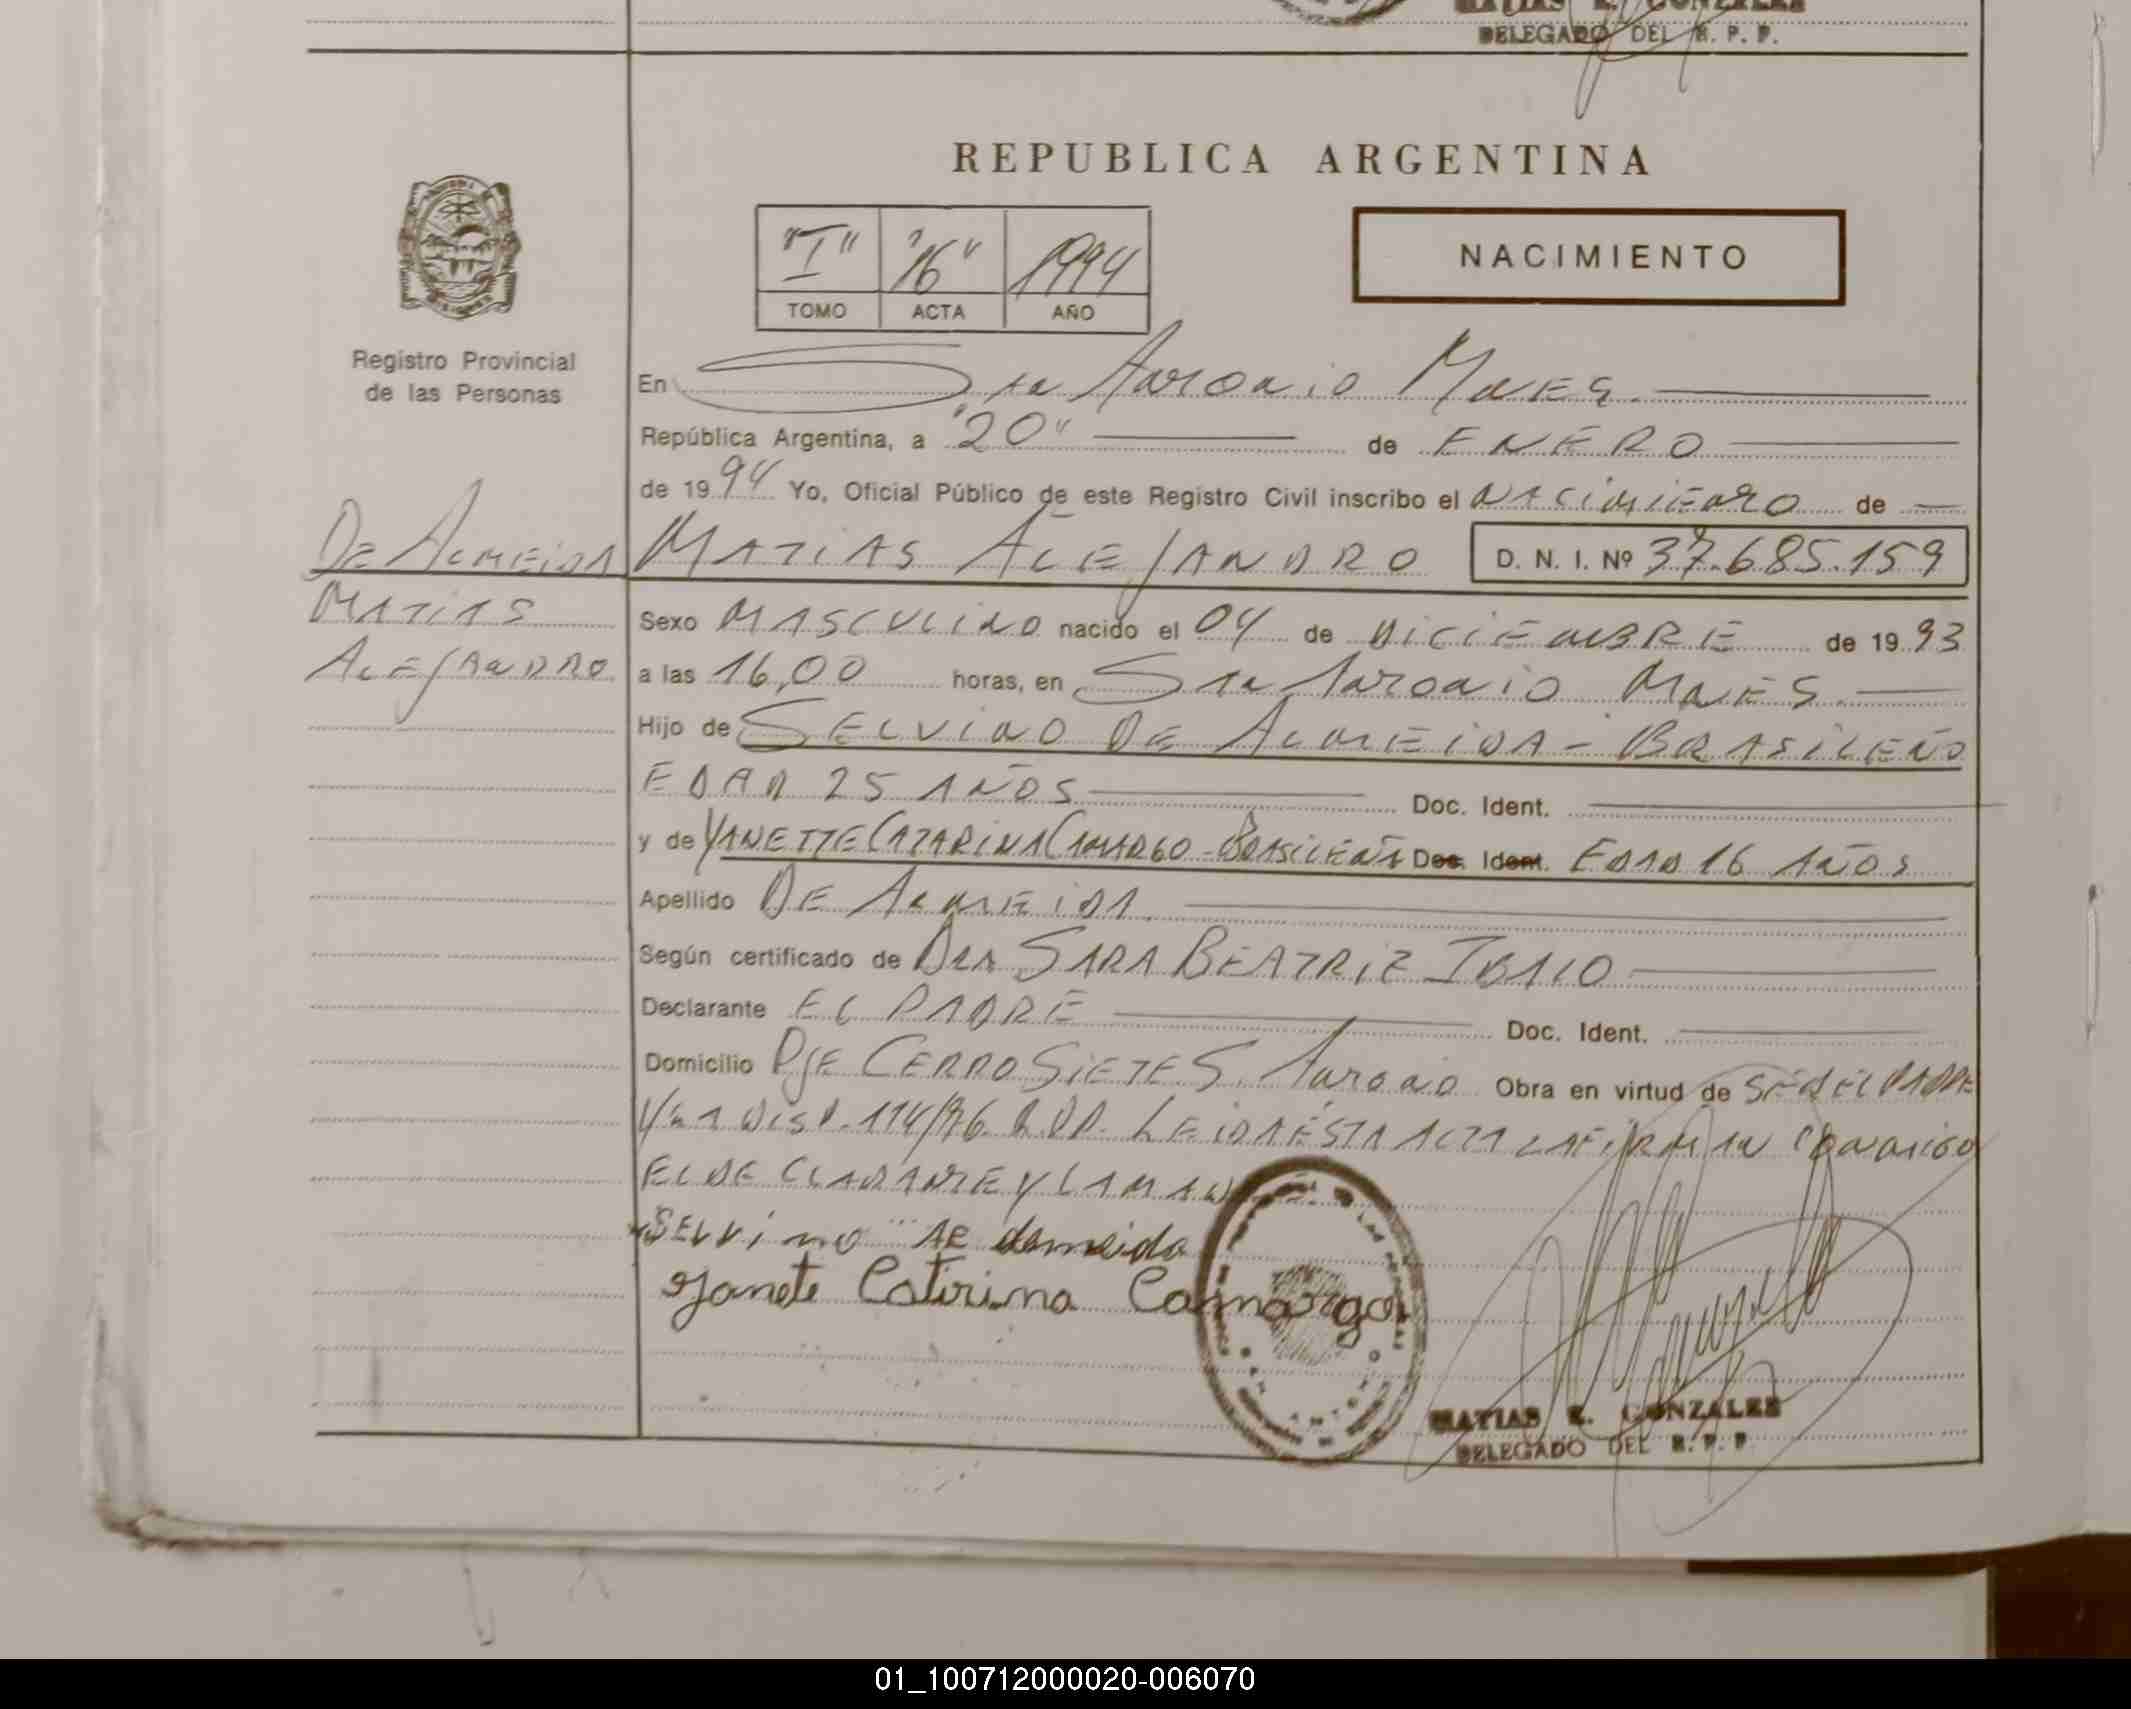 MATIAS E. GONZALEZ
DELEGADO DEL R. P. P.
REPUBLICA ARGENTINA
"I" "16" 1994
TOMO ACTA AÑO
NACIMIENTO
Registro Provincial
de las Personas
En San Antonio Mnes
República Argentina, a "20" de ENERO
de 1994 Yo, Oficial Público de este Registro Civil inscribo el NACIMIENTO de
DE ALMEIDA
MATIAS
ALEJANDRO
MATIAS ALEJANDRO D. N. I. Nº 37.685.159
Sexo MASCULINO nacido el 04 de DICIEMBRE de 1993
a las 16,00 horas, en San Antonio MNES
Hijo de SELVINO DE ALMEIDA - BRASILEÑO
EDAD 25 AÑOS Doc. Ident.
y de YANETTE CATARINA CAMARGO - BRASILEÑA Doc. Ident. EDAD 16 AÑOS
Apellido DE ALMEIDA
Según certificado de DRA SARA BEATRIZ
Declarante EL PADRE Doc. Ident.
Domicilio PJE CERRO SIETE S. Antonio Obra en virtud de
DISP. 114/76 LEIDA ESTA ACTA LA FIRMAN CONMIGO
EL DECLARANTE Y LA MADRE
SELVINO de almeida
Janete Catirina Camargo
MATIAS E. GONZALEZ
DELEGADO DEL R. P. P.
01_100712000020-006070